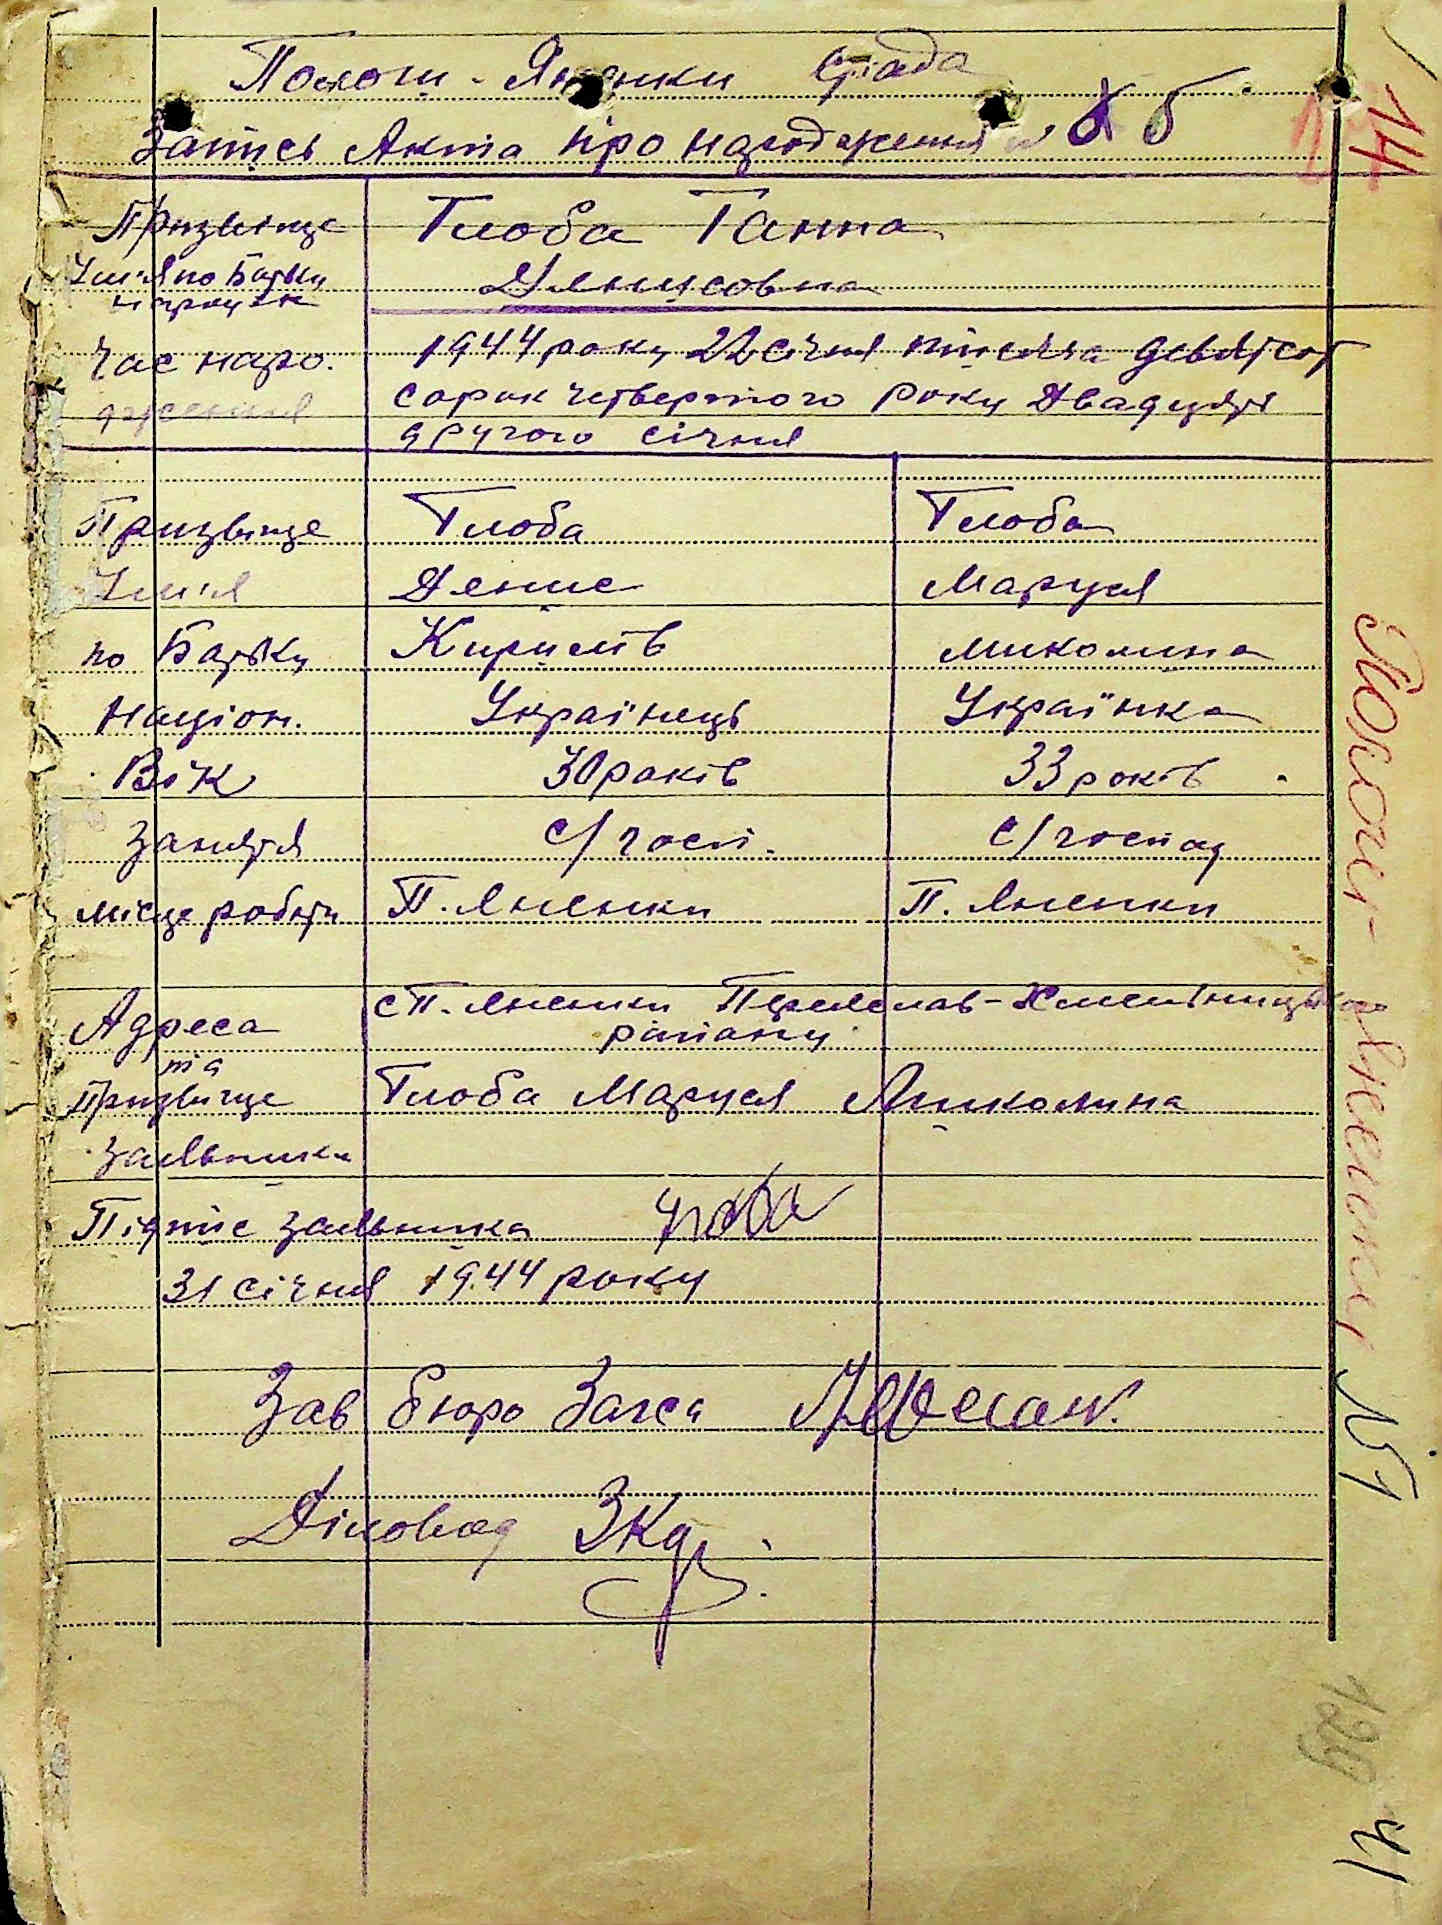 Пологи-Яненки с/рада
Запись Акта про народження № 6
Призвище Глоба Ганна
Имъя по Батьку Денисовна
Час народження 1944 року 22 січня тисяча девятсот
сорок четвертого року Двадцять
другого січня
Призвище Глоба Глоба
Имъя Денис Маруся
по Батьку Кирилів Миколина
Націон. Українець Українка
Вік 30 років 33 років
Заняття с/госп. с/господ
Місце роботи П. Яненки П. Яненки
Адреса с П. Яненки Переяслав-Хмельницького
району
та
Призвище Глоба Маруся Миколина
Заявника
Підпис заявника
31 січня 1944 року
Зав бюро Загса
Діловод
14
Пологи-Яненки, №1
129
41